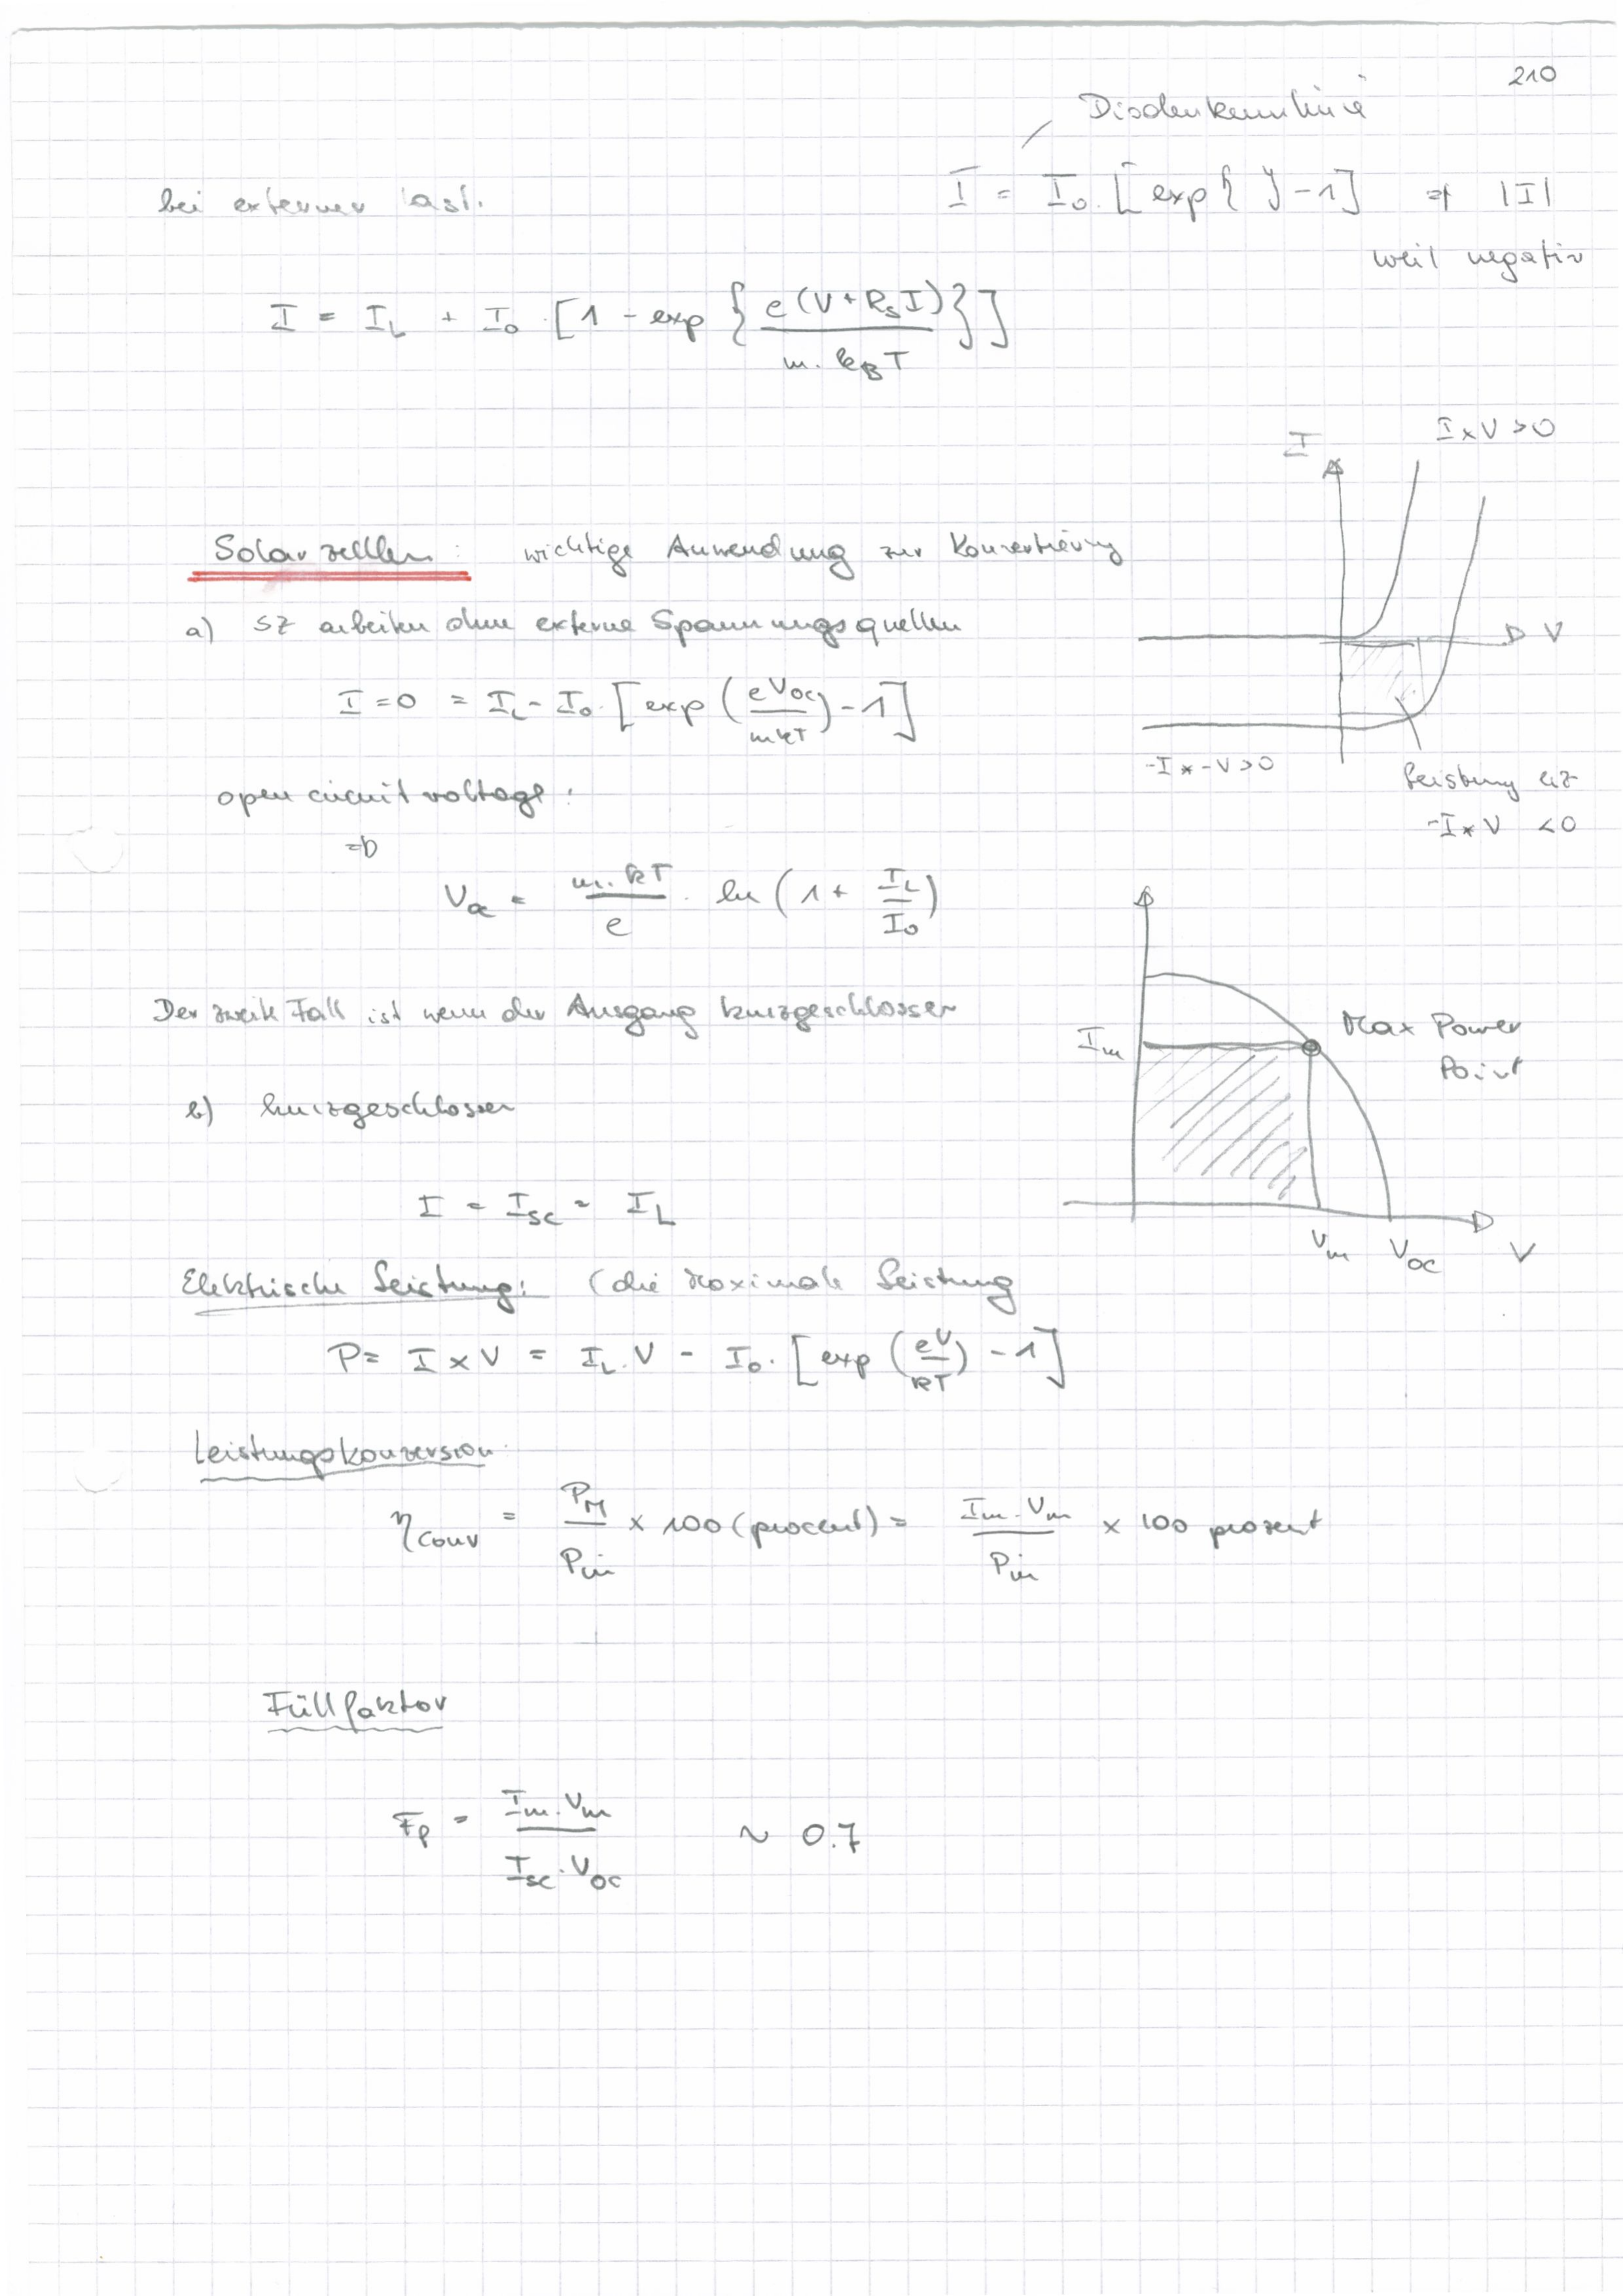 210
Diodenkennlinie
bei externer Last.
I = I₀ · [exp{ } - 1] ⇒ |I|
weil negativ
I = I_L + I₀ · [1 - exp {e(V + R_S I) / m · k_B T}]
I
I x V > 0
Solarzelllen : wichtige Anwendung zur Konvertierung
a) SZ arbeiten ohne externe Spannungsquellen
V
I = 0 = I_L - I₀ · [exp (eV_oc / mkT) - 1]
-I * -V > 0
Leistung
-I * V < 0
open circuit voltage :
V_oc = m · kT / e · ln (1 + I_L / I₀)
Der zweite Fall ist wenn der Ausgang kurzgeschlossen
I_m
Max Power
Point
b) kurzgeschlossen
I = I_sc = I_L
V_m V_oc V
Elektrische Leistung: (die Maximale Leistung
P = I x V = I_L · V - I₀ · [exp (eV / kT) - 1]
Leistungskonversion
η_conv = P_M / P_in x 100 (procent) = I_m · V_m / P_in x 100 prozent
Füllfaktor
F_f = I_m · V_m / I_sc · V_oc ~ 0.7